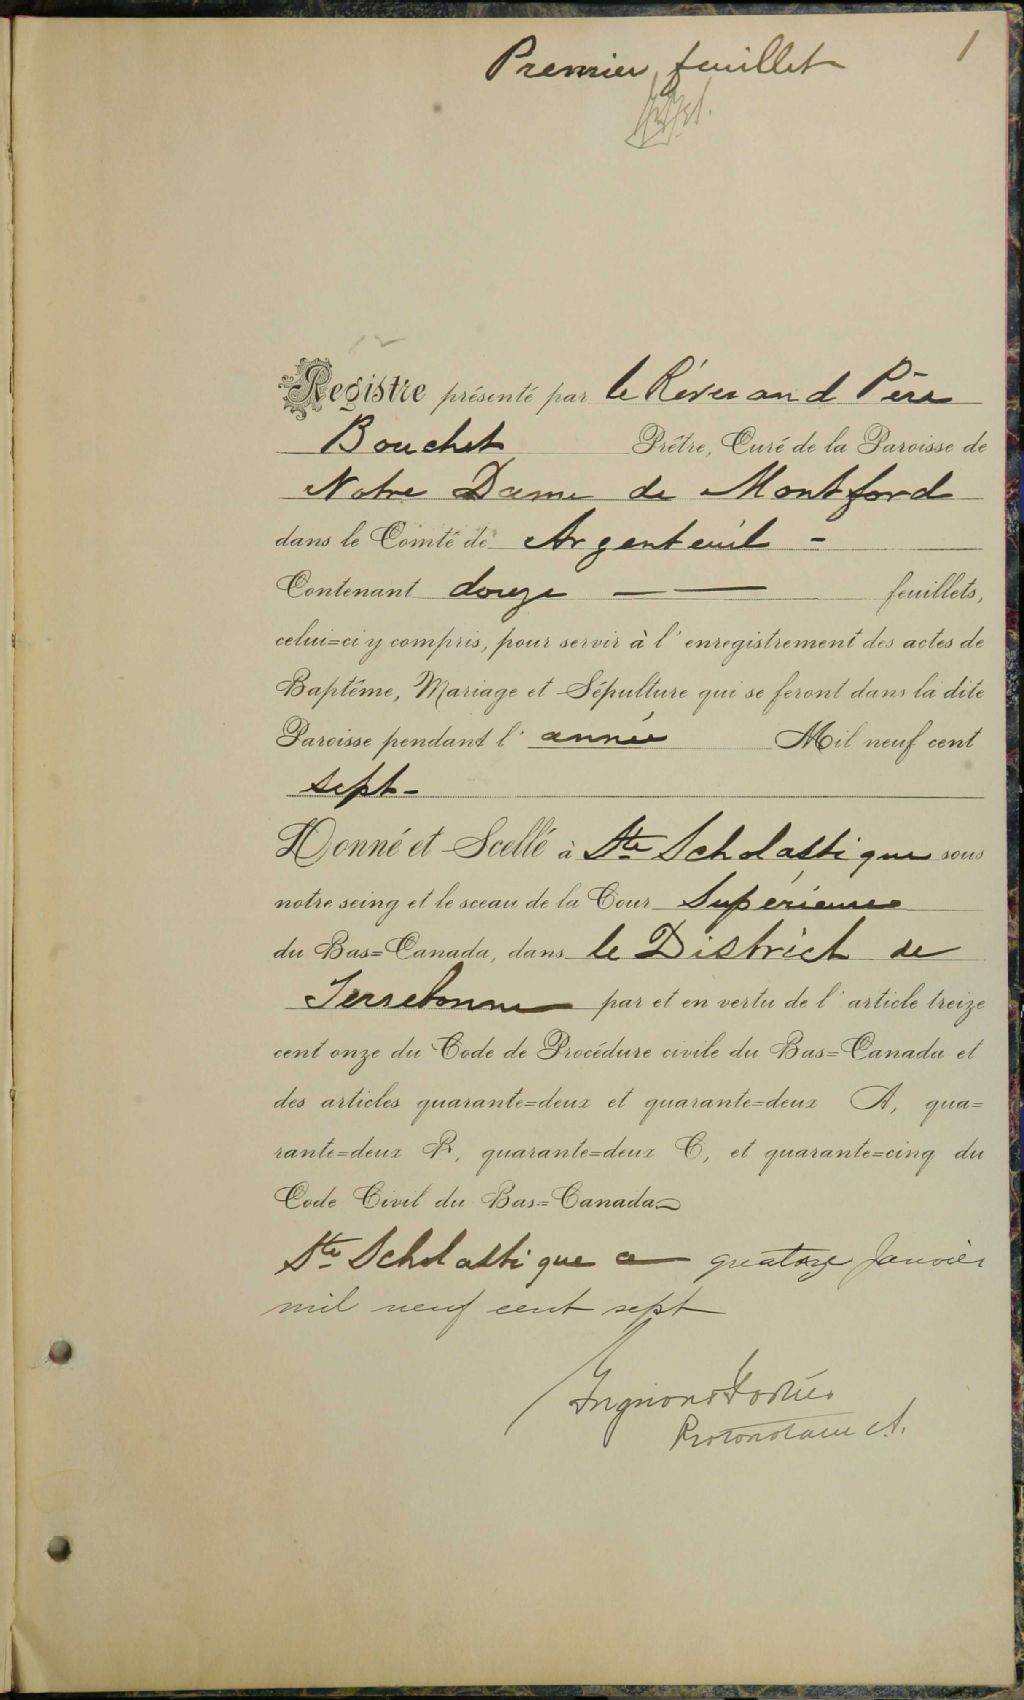 Premier feuillet
1
12
Registre présenté par le Réverand Père
Bouchet Prêtre, Curé de la Paroisse de
Notre Dame de Montford
dans le Comté de Argenteuil -
Contenant douze — — feuillets,
celui=ci y compris, pour servir à l'enregistrement des actes de
Baptême, Mariage et Sépulture qui se feront dans la dite
Paroisse pendant l'année Mil neuf cent
sept -
Donné et Scellé à Ste Scholastique sous
notre seing et le sceau de la Cour Supérieure
du Bas=Canada, dans le District de
Terrebonne par et en vertu de l'article treize
cent onze du Code de Procédure civile du Bas=Canada et
des articles quarante=deux et quarante=deux A, qua=
rante=deux B, quarante=deux C, et quarante=cinq du
Code Civil du Bas=Canada
Ste Scholastique ce quatorze Janvier
mil neuf cent sept
Protonotaire